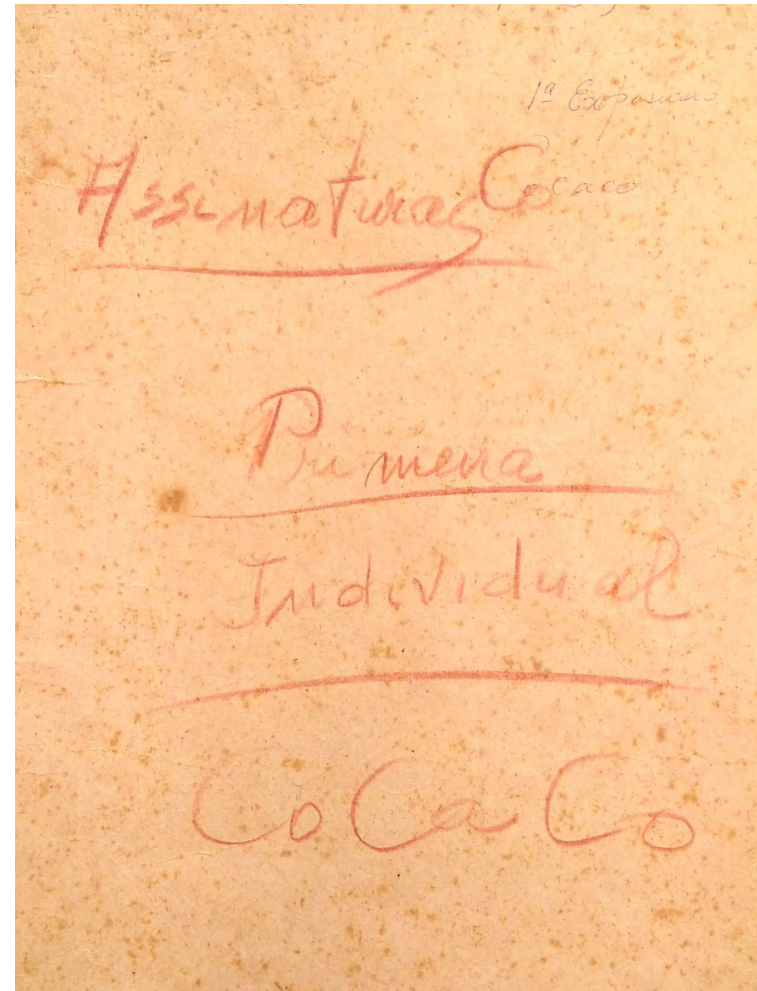 1ª Exposicao
Assinaturas Cocaco
Primeira
Individual
CoCaCo